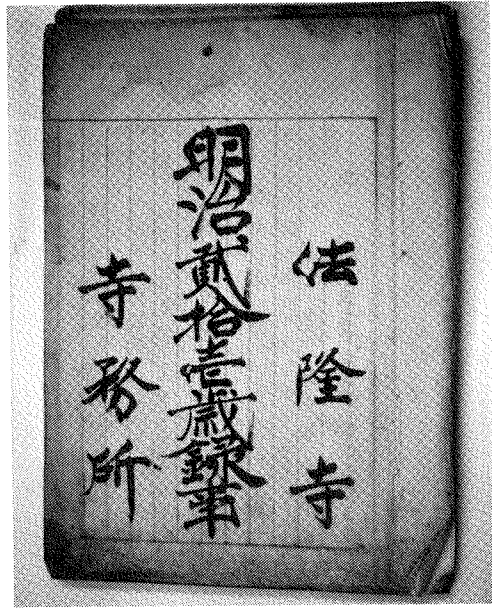 法隆寺
明治貳拾壱歳録事
寺務所